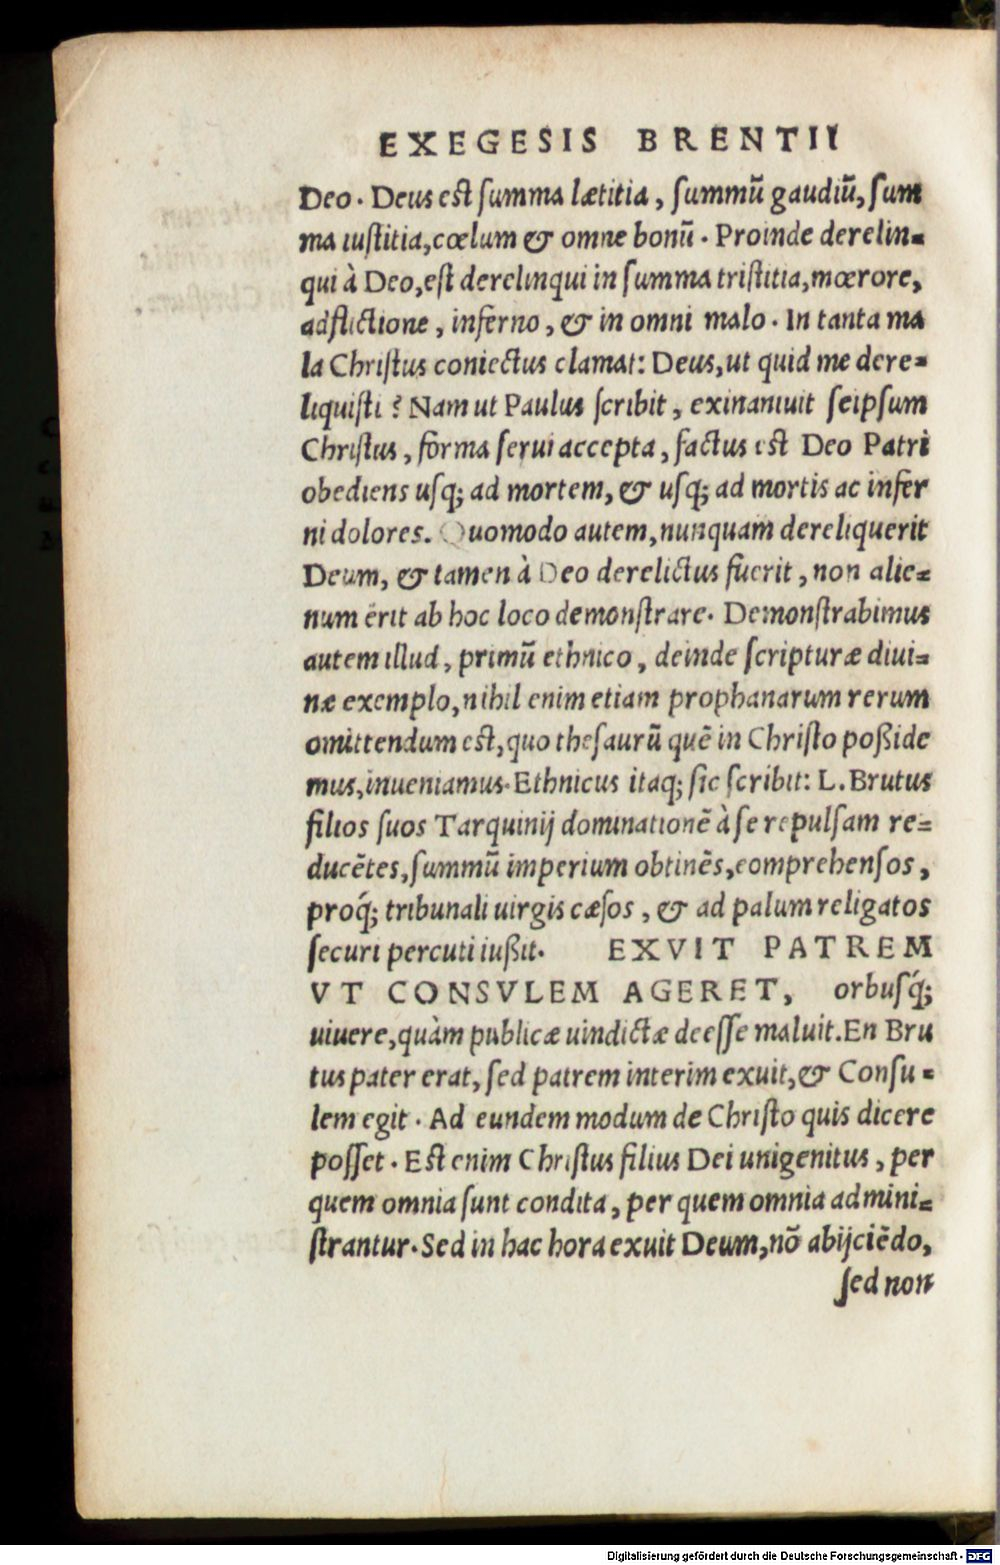 EXEGESIS BRENTII
Deo. Deus est ſumma lætitia, ſummũ gaudiũ, ſum
ma iuſtitia, cœlum & omne bonũ. Proinde derelin=
qui à Deo, eſt derelinqui in ſumma triſtitia, mœrore,
adflictione, inferno, & in omni malo. In tanta ma
la Chriſtus coniectus clamat: Deus, ut quid me dere=
liquiſti? Nam ut Paulus ſcribit, exinaniuit ſeipſum
Chriſtus, forma ſerui accepta, factus est Deo Patri
obediens uſq; ad mortem, & uſq; ad mortis ac infer
ni dolores. Quomodo autem, nunquam dereliquerit
Deum, & tamen à Deo derelictus fuerit, non alie=
num erit ab hoc loco demonſtrare. Demonſtrabimus
autem illud, primũ ethnico, deinde ſcripturæ diui=
næ exemplo, nihil enim etiam prophanarum rerum
omittendum est, quo theſaurũ quẽ in Chriſto poßide
mus, inueniamus. Ethnicus itaq; ſic ſcribit: L. Brutus
filios ſuos Tarquinij dominationẽ à ſe repulſam re=
ducẽtes, ſummũ imperium obtinẽs, comprehenſos,
proq́; tribunali uirgis cæſos, & ad palum religatos
ſecuri percuti iußit. EXVIT PATREM
VT CONSVLEM AGERET, orbuſq́;
uiuere, quàm publicæ uindictæ deeſſe maluit. En Bru
tus pater erat, ſed patrem interim exuit, & Conſu=
lem egit. Ad eundem modum de Chriſto quis dicere
poſſet. Est enim Chriſtus filius Dei unigenitus, per
quem omnia ſunt condita, per quem omnia admini=
ſtrantur. Sed in hac hora exuit Deum, nõ abijciẽdo,
ſed non
Digitalisierung gefördert durch die Deutsche Forschungsgemeinschaft - DFG